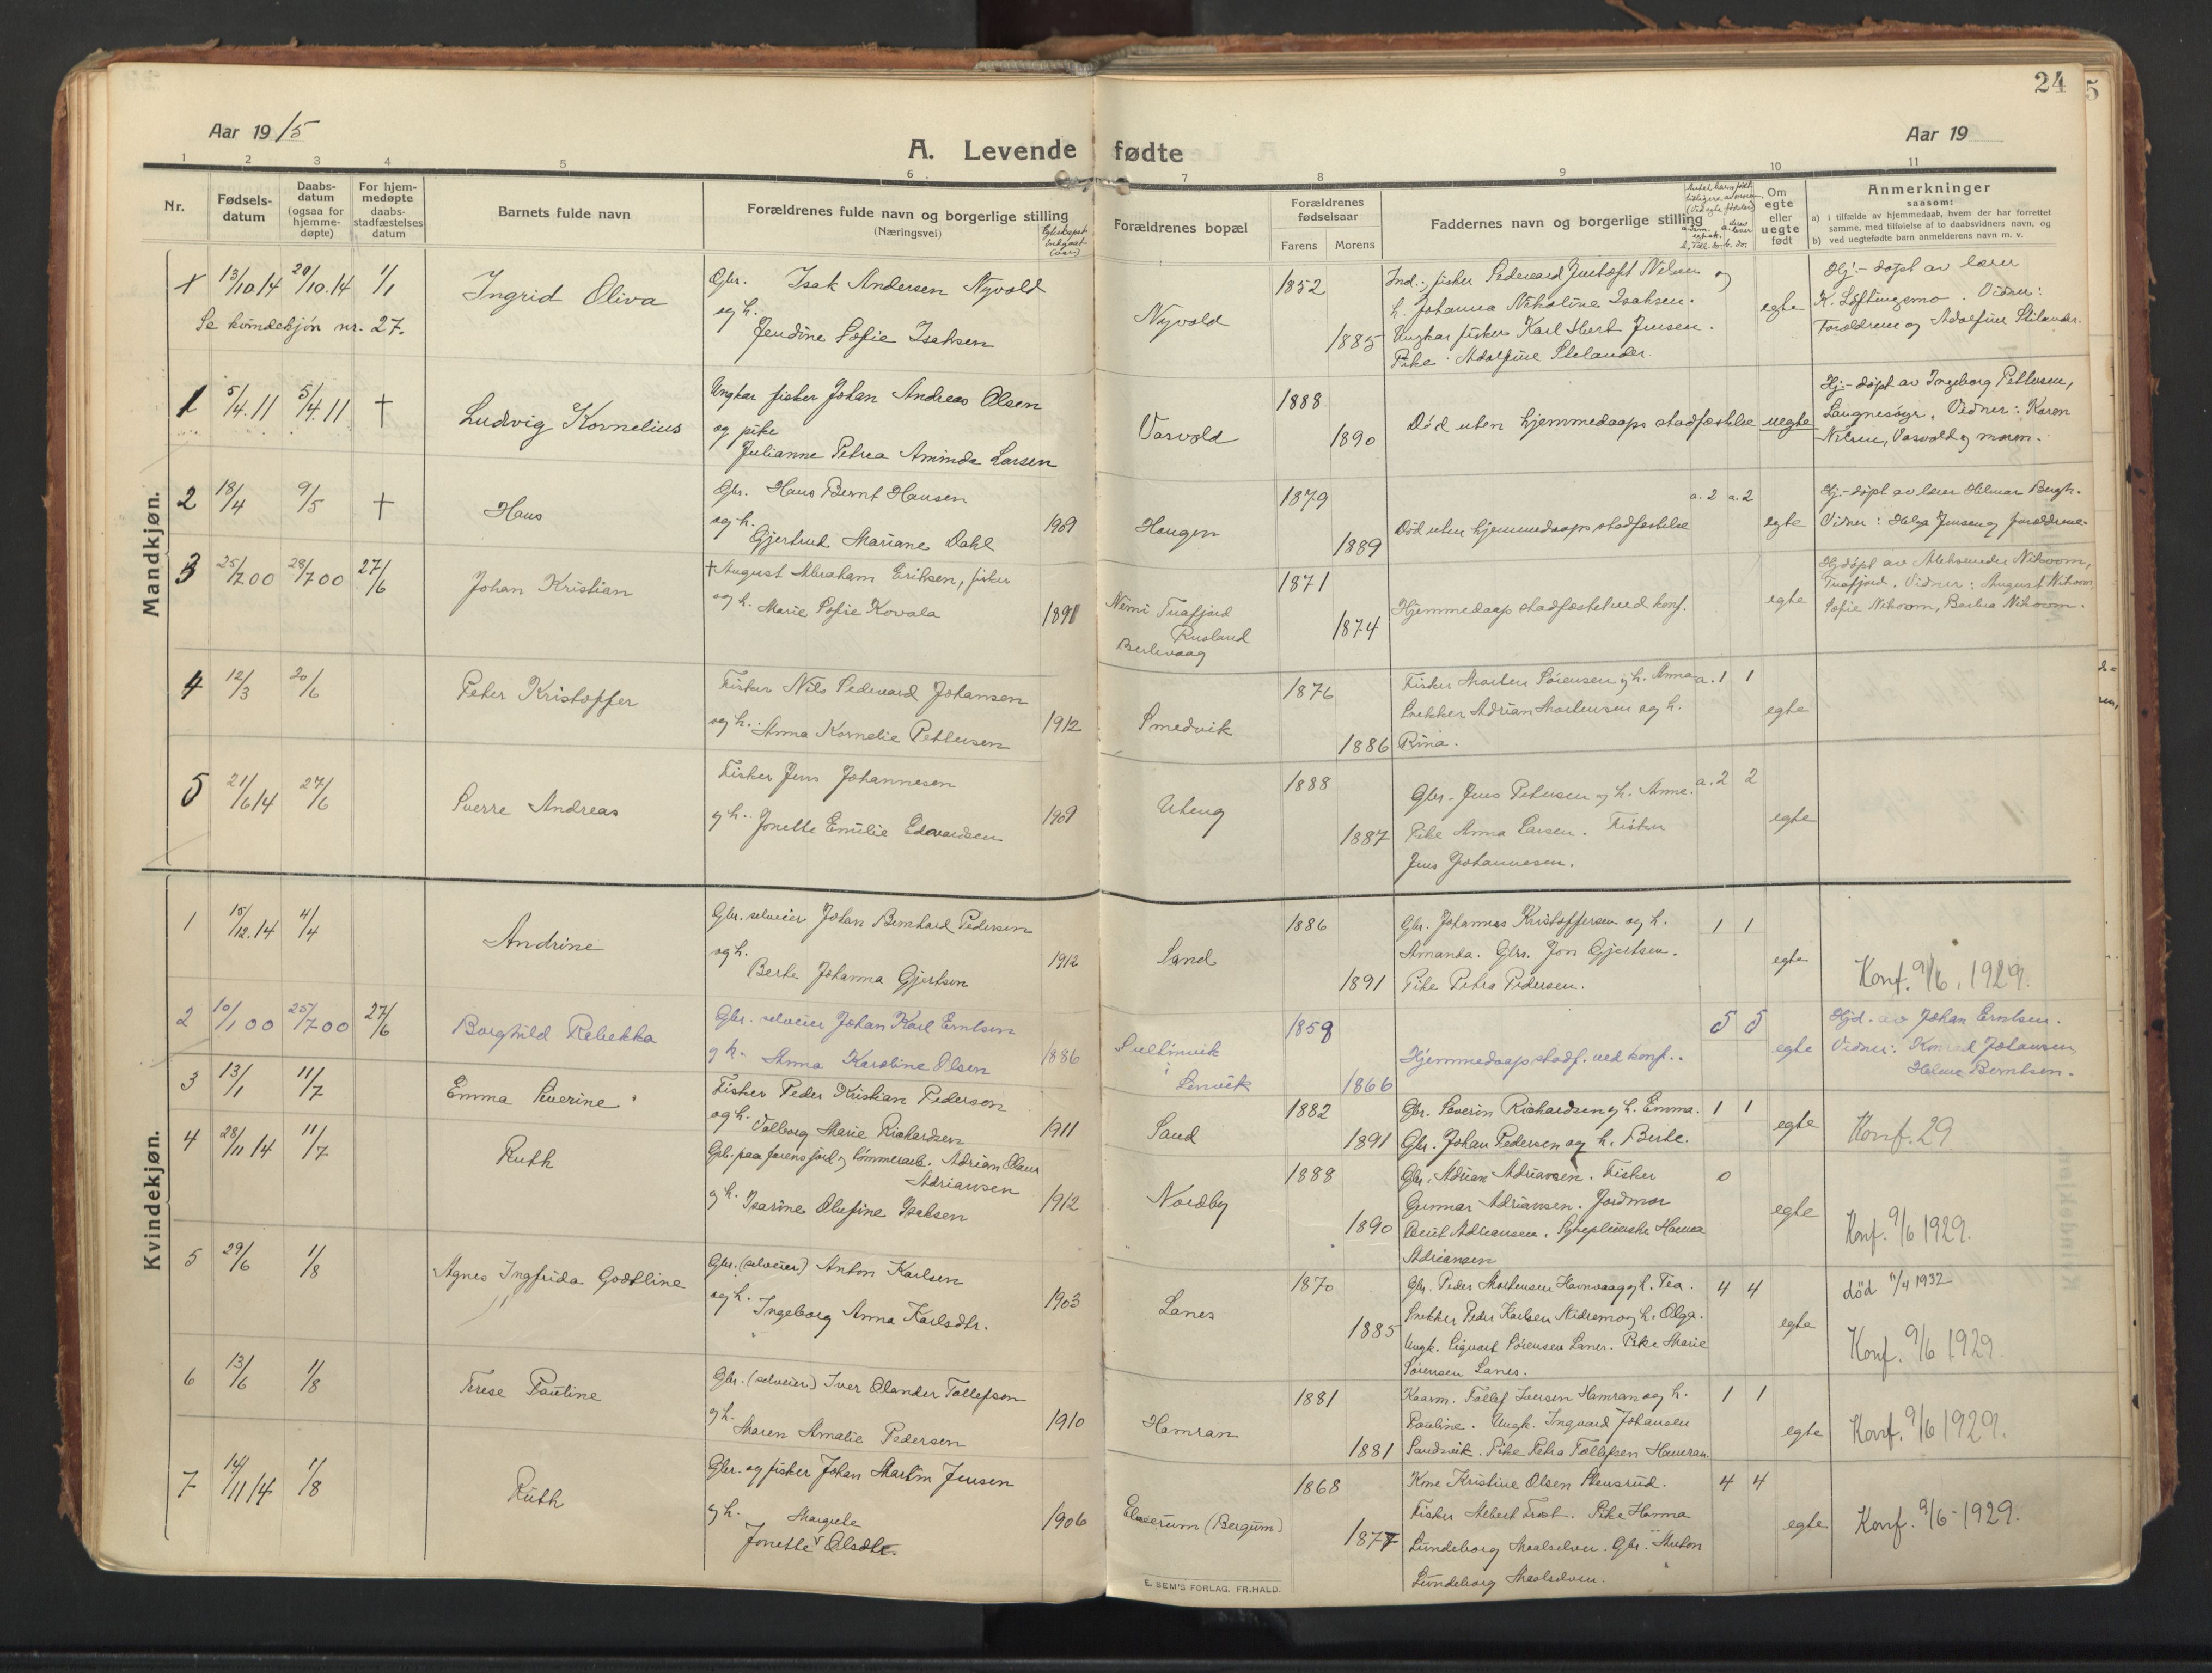 24
5
Aar 1915
A. Levende fødte
Aar 19
1 2 3 4 5 6 7 8 9 10 11
Nr.
Fødsels-
datum
Daabs-
datum
(ogsaa for
hjemme-
døpte)
For hjem-
medøpte
daabs-
stadfæstelses
datum
Barnets fulde navn
Forældrenes fulde navn og borgerlige stilling
(Næringsvei)
Forældrenes bopæl
Forældrenes
fødselsaar
Farens Morens
Faddernes navn og borgerlige stilling
Om
egte
eller
uegte
født
Anmerkninger
saasom:
a) i tilfælde av hjemmedaab, hvem der har forrettet
samme, med tilføielse af to daabsvidners navn, og
b) ved uegtefødte barn anmelderens navn m. v.
Mandkjøn.
13/10.14 20/10.14 1/1
Ingrid Oliva
Se kvindekjøn nr. 27.
Gbr. Isak Andersen Nyvold
og h.
Jendine Sofie Isaksen
Nyvold
1852
1885
Ind., fisker Pedevard Nilsen og
h. Johanna Nikoline Isaksen.
Ungkar fisker Karl Jensen.
Pike Adolfine Stelander.
egte
Hj.-døpt av lærer
K. Løftingsmo. Vidner:
Forældrene og Adolfine Stelander.
1 5/4.11 5/4.11 †
Ludvig Kornelius
Ungkar fisker Johan Andreas Olsen
og pike
Julianne Petrea Aminda Larsen
Vasvold
1888
1890
Død uten hjemmedaaps stadfæstelse
uegte
Hj.-døpt av Ingeborg Pettersen,
Vidner: Karen
Nilsen, Vasvold og moren.
2 18/4 9/5 †
Hans
Gbr. Hans Bernt Hansen
og h.
Gjertrud Mariane Dahl
1909
Haugen
1879
1889
Død uten hjemmedaaps stadfæstelse
a. 2 a. 2
egte
Hj.-døpt av lærer Hilmar Bergh.
Vidner: Helga Jensen og forældrene.
3 25/7 00 28/7 00 27/6
Johan Kristian
† August Abraham Eriksen, fisker
og h. Marie Sofie Kovala
1891
Tuafjord
Rusland
Berlevaag
1871
1874
Hjemmedaap stadfæstet ved konf.
egte
Hj.døpt av Aleksander Nikoom,
Tuafjord. Vidner: August Nikoom,
Sofie Nikoom, Barbra Nikoom.
4 12/3 20/6
Peter Kristoffer
Fisker Nils Pedevard Johansen
og h. Anna Kornelie Pettersen
1912
Smedvik
1876
1886
Fisker Morten Sørensen og h. Anna
Snekker Adrian Mortensen og h.
Rina.
a. 1 1
egte
5 21/6 14 27/6
Sverre Andreas
Fisker Jens Johannesen
og h. Jonette Emilie Edvardsen
1909
Uteng
1888
1887
Gbr. Jens Petersen og h. Anne.
Pike Anna Larsen. Fisker
Jens Johannesen.
a. 2 2
egte
Kvindekjøn.
1 15/12.14 4/4
Andrine
Gbr. selveier Johan Bernhard Pedersen
og h.
Berte Johanna Gjertsen
1912
Sand
1886
1891
Gbr. Johannes Kristoffersen og h.
Amanda. Gbr. Jon Gjertsen.
Pike Petra Pedersen.
1 1
egte
Konf. 9/6. 1929.
2 10/1 00 25/7 00 27/6
Borghild Rebekka
Gbr. selveier Johan Karl Erntsen
og h. Anna Karoline Olsen
1886
Sultinvik
i Lenvik
1858
1866
Hjemmedaap stadf. ved konf.
5 5
egte
Hjd. av Johan Erntsen.
Vidner: Konrad Johansen,
Helene Berntsen.
3 13/1 11/7
Emma Severine
Fisker Peder Kristian Pederson
og h. Valborg Marie Richardsen
1911
Sand
1882
1891
Gbr. Severin Richardsen og h. Emma.
Gbr. Johan Pedersen og h. Berte.
1 1
egte
Konf. 29
4 28/11 14 11/7
Ruth
Gbr. paa farens jord og tømmerarb. Adrian Olaus
Adriansen
og h. Isarine Olufine Isaksen
1912
Nordby
1888
1890
Gbr. Adrian Adriansen. Fisker
Gunnar Adriansen. Jordmor
Berit Adriansen. Sykepleierske Hanna
Adriansen
0
egte
Konf. 9/6 1929.
5 29/6 1/8
Agnes Ingfrida Godtline
Gbr. (selveier) Anton Karlsen
og h.
Ingeborg Anna Karlsdtr.
1903
Lanes
1870
1885
Gbr. Peder Mortensen Havnvaag og h. Tea.
Snekker Peder Karlsen Nedremo og h. Olga.
Ungk. Sigvart Sørensen Lanes. Pike Marie
Sørensen Lanes.
4 4
egte
død 11/4 1932
Konf. 9/6 1929.
6 13/6 1/8
Terese Pauline
Gbr. (selveier) Iver Olander Tollefson
og h.
Maren Amalie Pedersen
1910
Hamran
1881
1881
Kaarm. Tollef Iversen Hamran og h.
Pauline. Ungk. Ingvard Johansen
Sandvik. Pike Petra Tollefsen Hamran.
1 1
egte
Konf. 9/6 1929.
7 14/11 14 1/8
Ruth
Gbr. og fisker Johan Martin Jensen
og h. Margrete
Jonette Olsdtr.
1906
Elverum (Bergum)
1868
1877
Kone Kristine Olsen Stensrud.
Fisker Albert Frost. Pike Hanna
Lundeborg Maalselven. Gbr. Anton
Lundeborg Maalselven.
4 4
egte
Konf. 9/6 - 1929.
E. SEM'S FORLAG. FR.HALD.